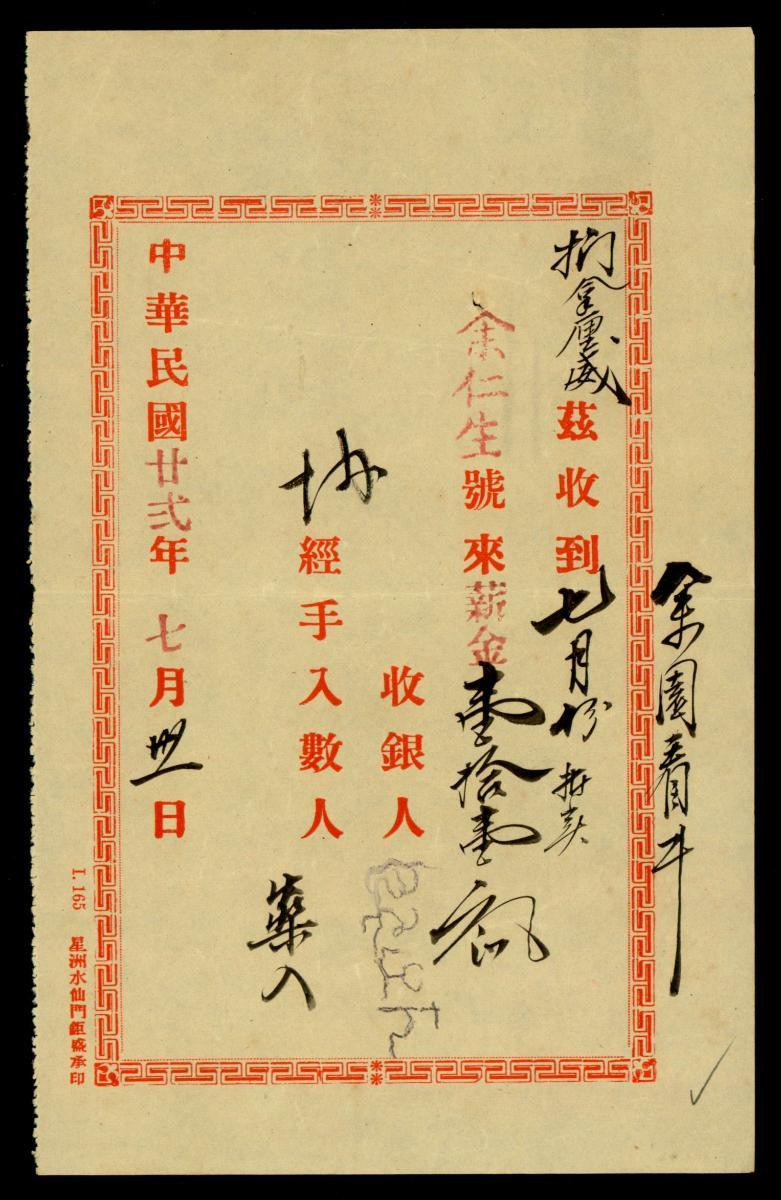 余園看牛
茲收到七月份
余仁生號來薪金壹拾壹
收銀人
協經手入數人
藥入
中華民國廿弍年七月卅一日
I. 165 星洲水仙門鉅盛承印